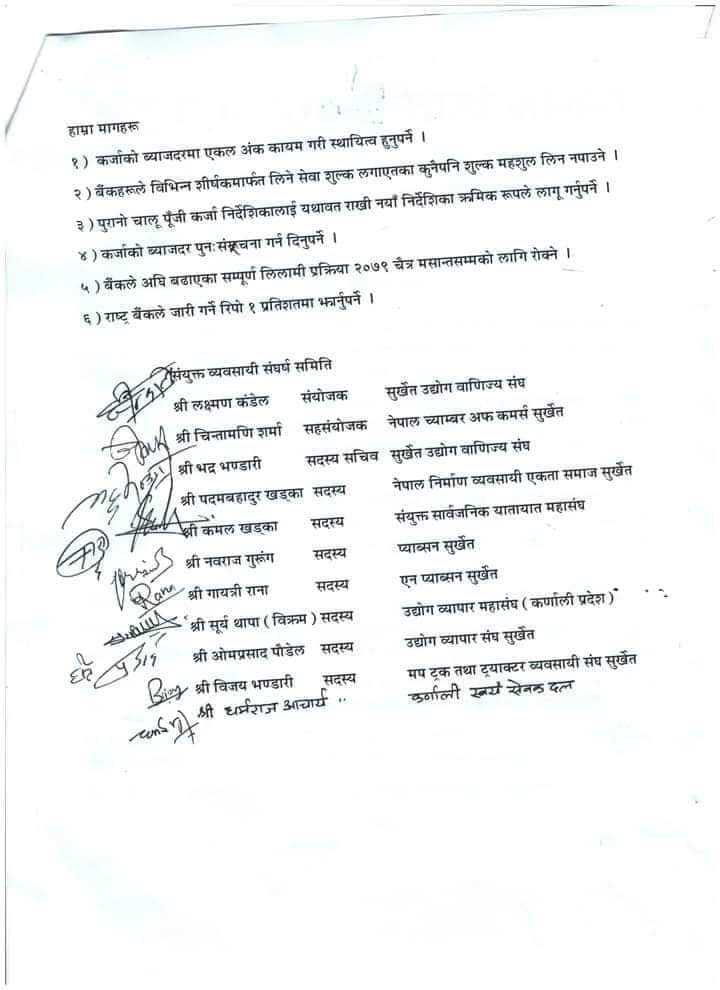 हाम्रा मागहरू
१) कर्जाको ब्याजदरमा एकल अंक कायम गरी स्थायित्व हुनुपर्ने ।
२) बैंकहरूले विभिन्न शीर्षकमार्फत लिने सेवा शुल्क लगाएतका कुनैपनि शुल्क महशुल लिन नपाउने ।
३) पुरानो चालू पूँजी कर्जा निर्देशिकालाई यथावत राखी नयाँ निर्देशिका क्रमिक रूपले लागू गर्नुपर्ने ।
४) कर्जाको ब्याजदर पुनःसंरचना गर्न दिनुपर्ने ।
५) बैंकले अघि बढाएका सम्पूर्ण लिलामी प्रक्रिया २०७९ चैत्र मसान्तसम्मको लागि रोक्ने ।
६) राष्ट्र बैंकले जारी गर्ने रिपो १ प्रतिशतमा झार्नुपर्ने ।
संयुक्त व्यवसायी संघर्ष समिति
श्री लक्ष्मण कंडेल संयोजक सुर्खेत उद्योग वाणिज्य संघ
श्री चिन्तामणि शर्मा सहसंयोजक नेपाल च्याम्बर अफ कमर्स सुर्खेत
श्री भद्र भण्डारी सदस्य सचिव सुर्खेत उद्योग वाणिज्य संघ
श्री पदमबहादुर खड्का सदस्य नेपाल निर्माण व्यवसायी एकता समाज सुर्खेत
श्री कमल खड्का सदस्य संयुक्त सार्वजनिक यातायात महासंघ
श्री नवराज गुरूंग सदस्य प्याब्सन सुर्खेत
श्री गायत्री राना सदस्य एन प्याब्सन सुर्खेत
श्री सूर्य थापा (विक्रम) सदस्य उद्योग व्यापार महासंघ (कर्णाली प्रदेश)
श्री ओमप्रसाद पौडेल सदस्य उद्योग व्यापार संघ सुर्खेत
श्री विजय भण्डारी सदस्य मप ट्रक तथा ट्रयाक्टर व्यवसायी संघ सुर्खेत
श्री धर्मराज आचार्य " कर्णाली स्वयं सेवक दल